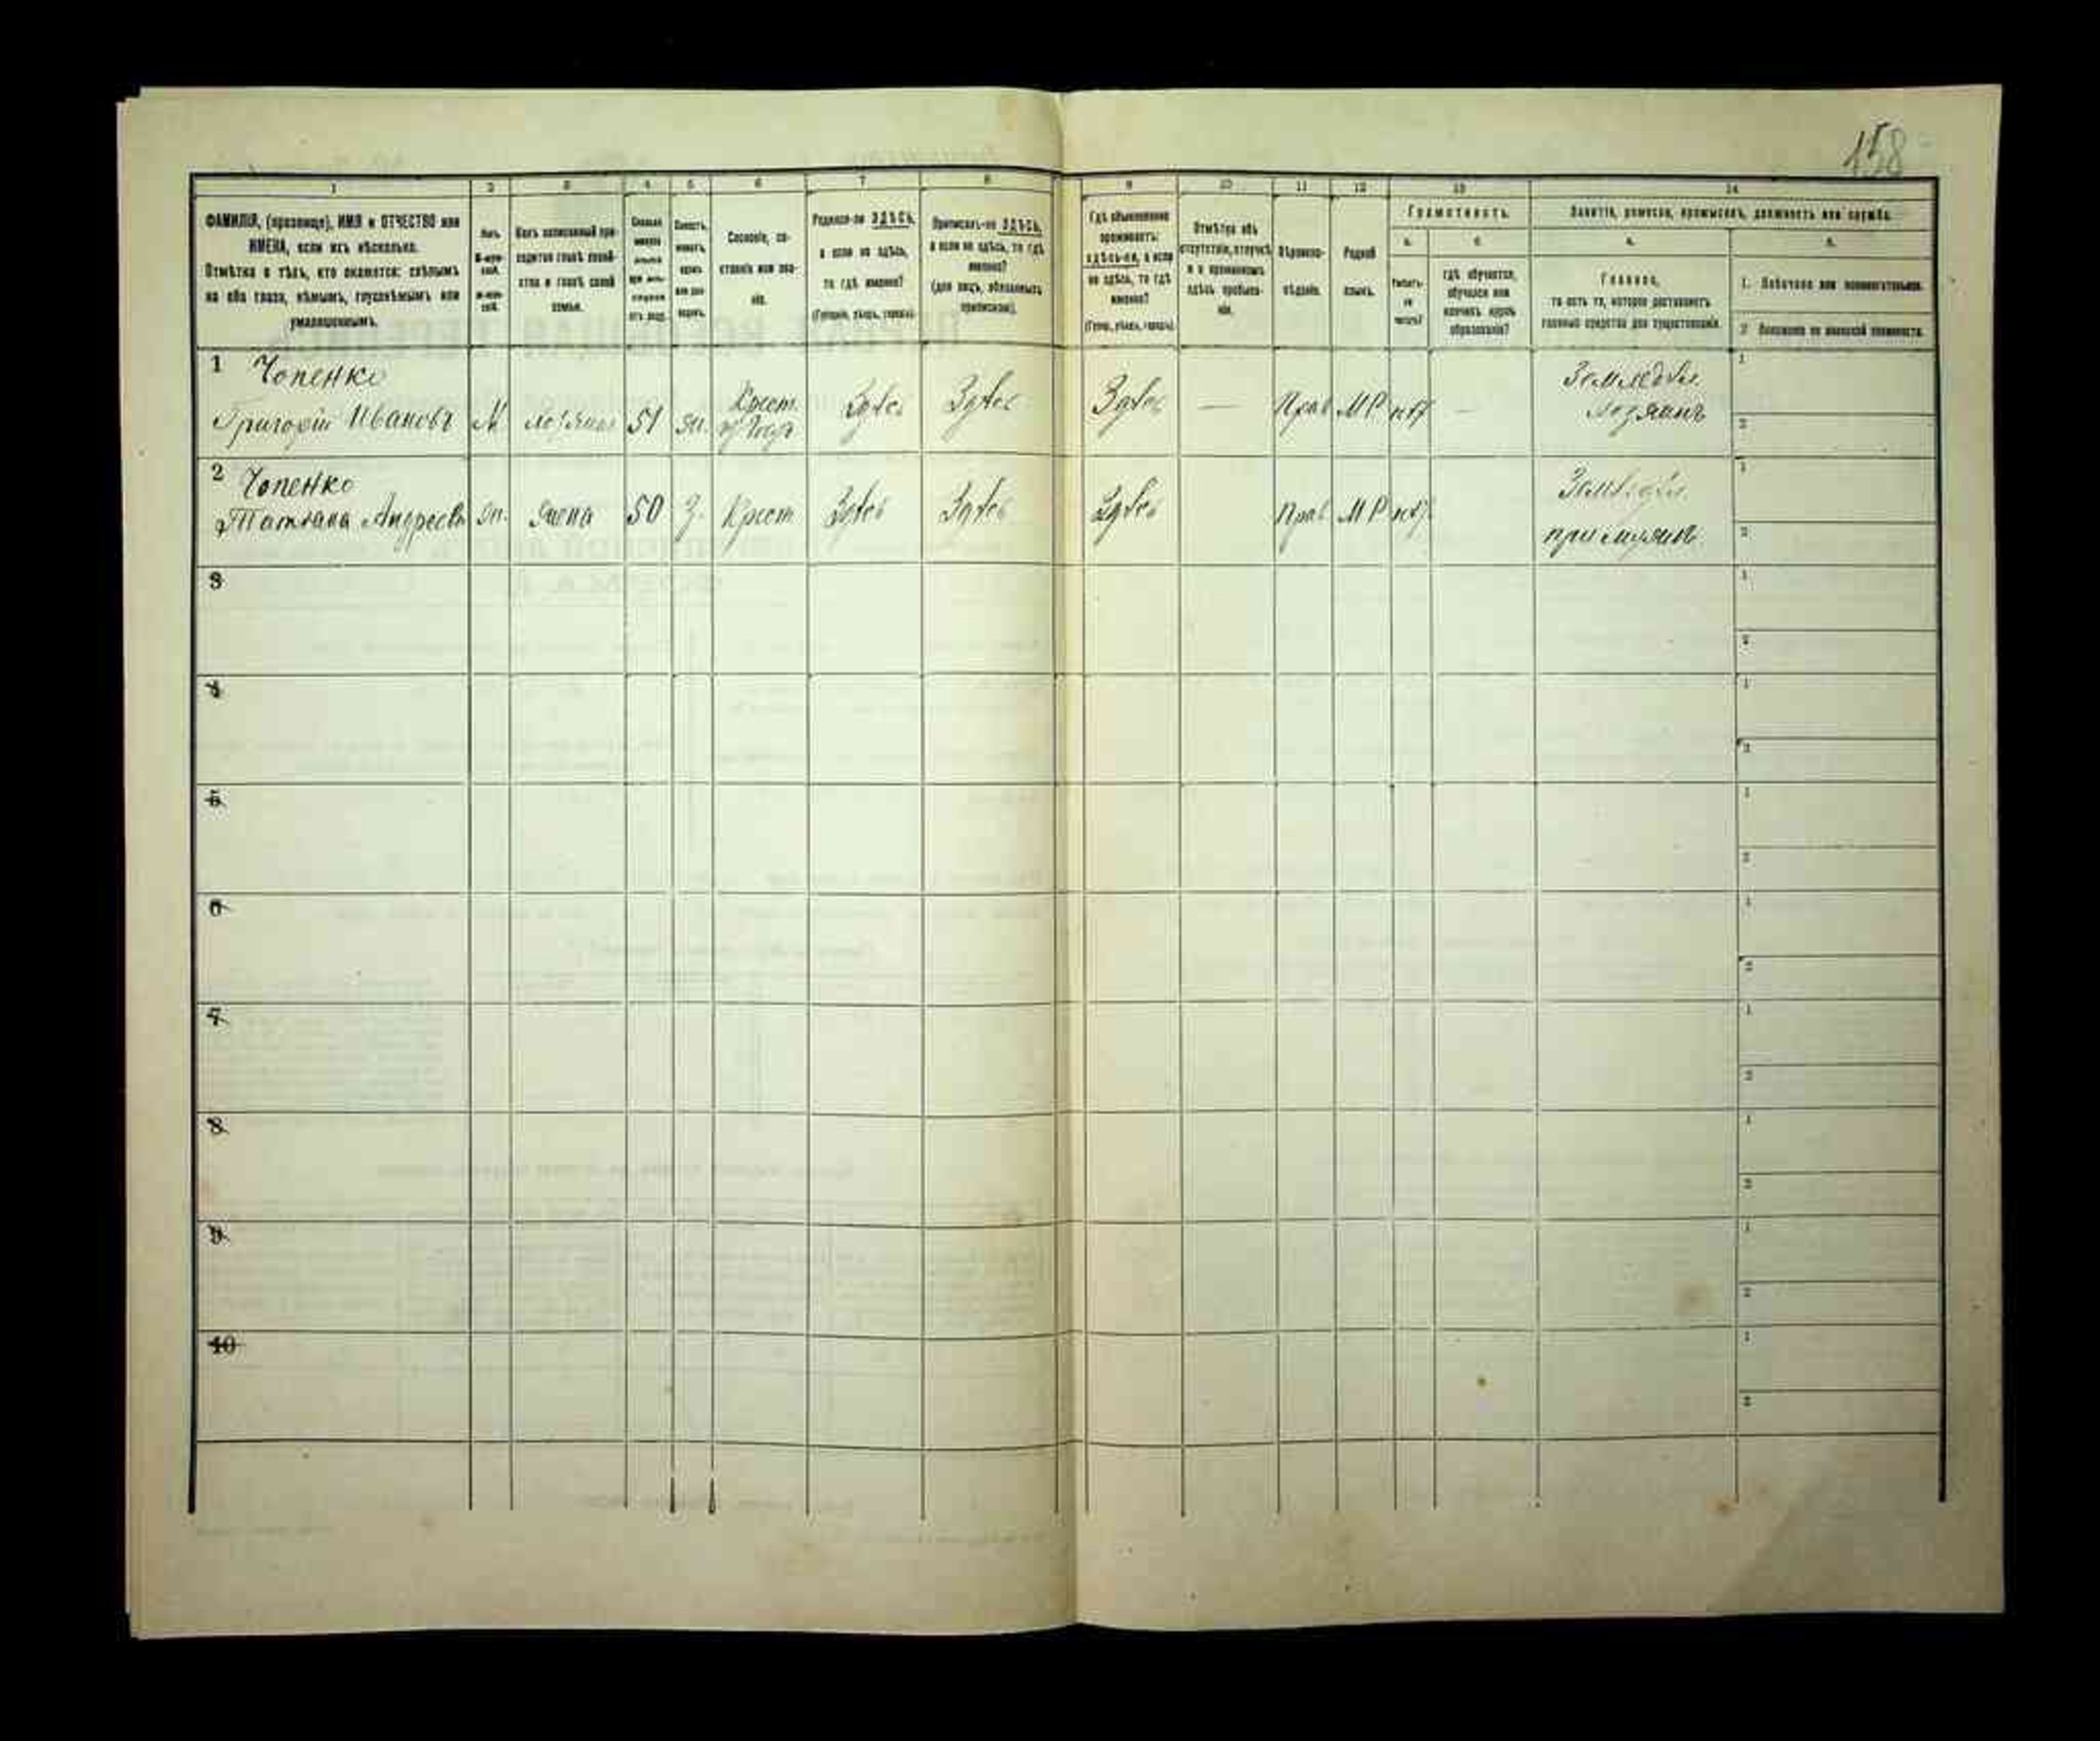 158
1 2 3 4 5 6 7 8 9 10 11 12 13 14
ФАМИЛІЯ, (прозвище), ИМЯ и ОТЧЕСТВО или
ИМЕНА, если ихъ нѣсколько.
Отмѣтка о тѣхъ, кто окажется: слѣпымъ
на оба глаза, нѣмымъ, глухонѣмымъ или
умалишеннымъ.
Полъ.
М-муж-
ской.
Ж-жен-
ской.
Какъ записанный при-
ходится главѣ хозяй-
ства и главѣ своей
семьи.
Сословіе, со-
стояніе или зва-
ніе.
Родился-ли ЗДѢСЬ,
а если не здѣсь,
то гдѣ именно?
(Губернія, уѣздъ, городъ).
Приписанъ-ли ЗДѢСЬ,
а если не здѣсь, то гдѣ
именно?
(для лицъ, обязанныхъ
припиской).
Гдѣ обыкновенно
проживаетъ:
здѣсь-ли, а если
не здѣсь, то гдѣ
именно?
(Губер., уѣздъ, городъ).
Отмѣтка объ
отсутствіи, отлучкѣ
и о временномъ
здѣсь пребыва-
ніи.
Вѣроиспо-
вѣданіе.
Родной
языкъ.
Грамотность.
а.
Умѣетъ-
ли
читать?
б.
гдѣ обучается,
обучался или
кончилъ курсъ
образованія?
Занятіе, ремесло, промыселъ, должность или служба.
а.
Главное,
то есть то, которое доставляетъ
главныя средства для существованія.
б.
1. Побочное или вспомогательное.
2. Положеніе по воинской повинности.
1 Чопенко
Григорій Ивановъ М хозяинъ 51 Крест. Здѣсь Здѣсь Здѣсь — Прав МР нѣт — Земледѣл. хозяинъ
1
2
2 Чопенко
Татьана Андреевъ жена 50 З. Крест Здѣсь Здѣсь Здѣсь Прав МР нѣт Земледѣл.
1
2
3
1
2
4
1
2
5
1
2
6
1
2
7
1
2
8
1
2
9
1
2
10
1
2